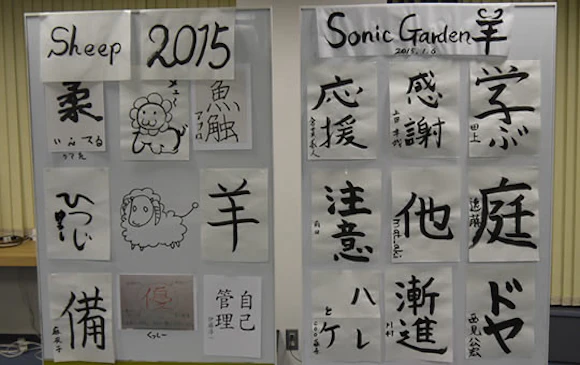 Sheep
2015
柔
魚
触
ひつじ
羊
備
麻衣子
優
くっしー
自己
管理
Sonic Garden羊
2015.1.6
応援
感謝
学ぶ
田上
注意
他
mah
庭
遠藤
ハレ
と
ケ
漸進
川村
ドヤ
西見公宏